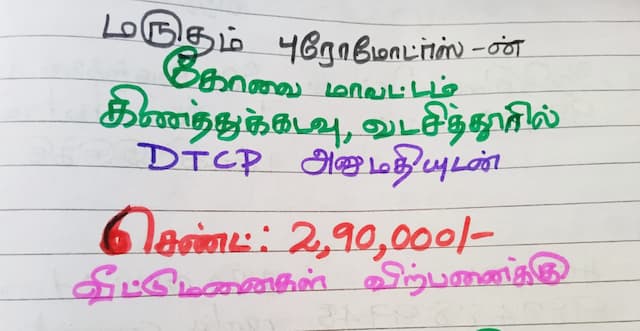 மருதம் புரோமோட்டர்ஸ்-ன்
கோவை மாவட்டம்
கிணத்துக்கடவு, வடசித்தூரில்
DTCP அனுமதியுடன்
செண்ட்: 2,90,000/-
வீட்டுமனைகள் விற்பனைக்கு